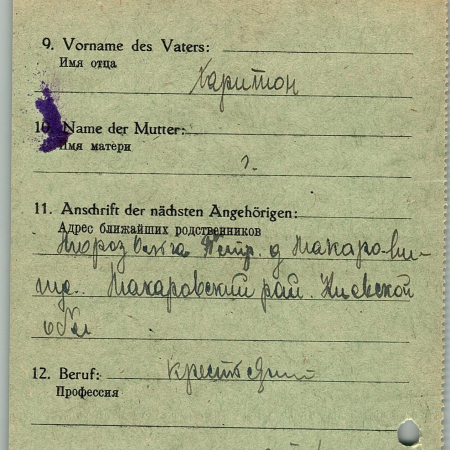 9. Vorname des Vaters:
Имя отца
Харитон
10. Name der Mutter:
Имя матери
г.
11. Anschrift der nächsten Angehörigen:
Адрес ближайших родственников
Мороз Ольга Петр. д Макарови-
ще. Макаровский рай. Киевской
обл
12. Beruf: крестьянин
Профессия